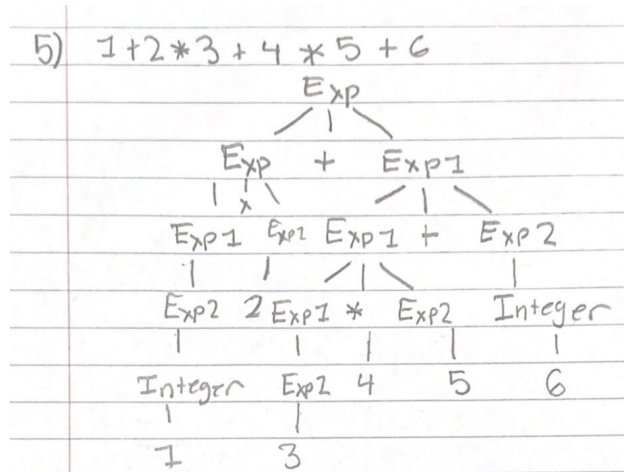 5) 1+2*3+4 *5+6
Exp
Exp + Exp1
x
Exp1 Exp2 Exp1 + Exp2
Exp2 2 Exp1 * Exp2 Integer
Integer Exp2 4 5 6
1 3